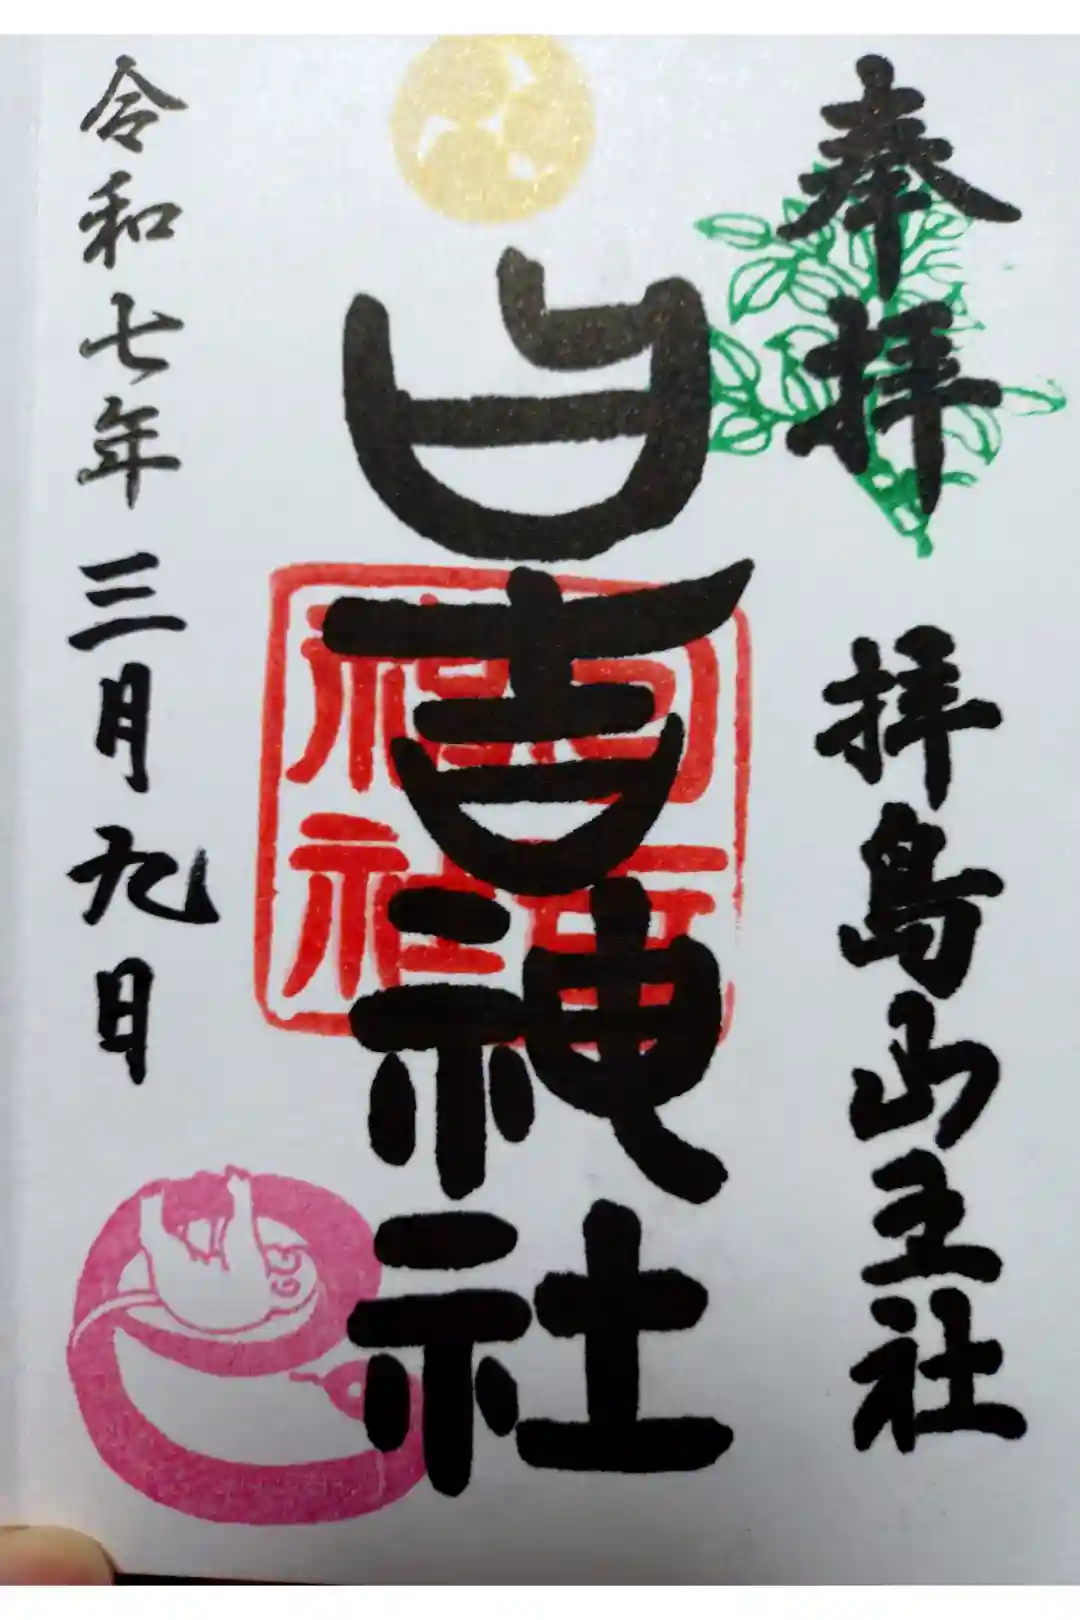 奉拝
拝島山王社
日吉神社
日吉
神社
令和七年三月九日